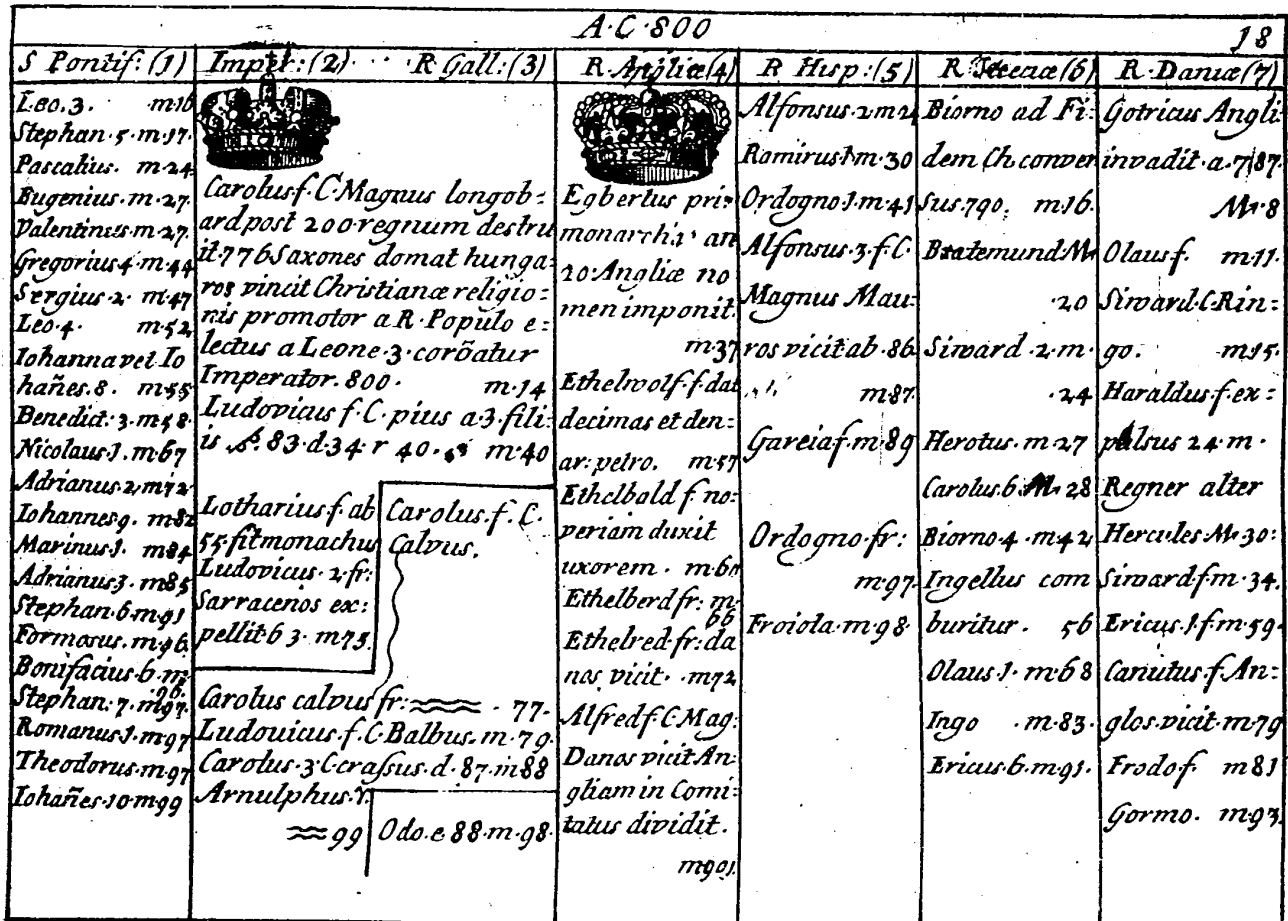 A·C·800
18
S Pontif:(1)
Leo.3. m.16
Stephan.5.m.17.
Pascalius. m.24
Eugenius.m.27.
Valentinus.m.27.
Gregorius4.m.44
Sergius.2. m.47
Leo.4. m.52
Iohanna vel Io
hañes.8. m.55
Benedict:3.m.58.
Nicolaus.1.m.67
Adrianus.2.m72.
Iohannes9. m.82
Marinus.1. m.84
Adrianus.3.m.85
Stephan.6.m.91
Formosus.m.96.
Bonifacius.6.m.
.96.
Stephan:7.m97.
Romanus.1.m.97
Theodorus.m.97
Iohañes.10.m99
Imper:(2) R Gall:(3)
Carolus f.C.Magnus longob=
ard post 200.regnum destru
it.776 Saxones domat hunga=
ros vincit Christianæ religio=
nis promotor a R.Populo e=
lectus a Leone.3.corõatur
Imperator.800. m.14
Ludovicus f.C.pius a.3.fili=
is 83.d.34.r 40. m.40
Lotharius f.ab
55 fit monachus
Ludovicus.2.fr:
Sarracenos ex=
pellit 63.m75.
Carolus.f.C.
Calvus.
Carolus calvus fr: 77.
Ludovicus.f.C.Balbus.m.79.
Carolus.3.C.crassus.d.87.m88
Arnulphus.
99
Odo.e 88.m.98.
R Angliæ(4)
Egbertus pri=
monarcha an
20.Angliæ no
men imponit.
m.37
Ethelwolf.f.dat
decimas et den=
ar:petro. m.57
Ethelbald f.no=
veriam duxit
uxorem. m.60
Ethelberd fr: m.
66
Ethelred.fr:da
nos vicit. m72
Alfred f.C.Mag:
Danos vicit An=
gliam in Comi=
tatus dividit.
m.901.
R Hisp:(5)
Alfonsus.2 m.24
Ramirus1.m.30
Ordogno.1.m.41
Alfonsus.3.f.C.
Magnus Mau=
ros vicit ab.86
m87.
Garcia f.m.89
Ordogno.fr:
m.97.
Froiola.m.98.
R (6)
Biorno ad Fi=
dem Ch.conver
sus.790. m16.
Bratemund M.
.20
Siward.2.m.
.24
Herotus.m.27
Carolus.6.M.28
Biorno4.m.42
Ingellus com
buritur. 56
Olaus.1.m.68
Ingo .m.83.
Ericus.6.m.91.
R.Daniæ(7)
Gotricus Angli=
invadit.a.787.
M.8
Olaus f. m.11.
Siward.C.Rin=
go. m15.
Haraldus.f.ex=
pulsus 24.m.
Regner alter
Hercules M.30:
Siward f.m.34.
Ericus.1.f.m.59.
Canutus.f.An=
glos.vicit.m.79
Frodo f. m81
Gormo. m.93.